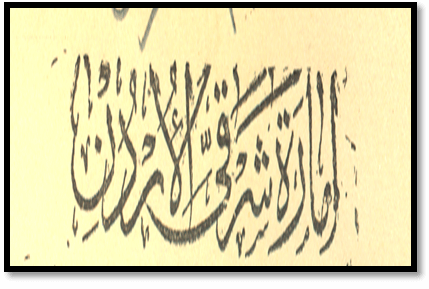 امارة شرقيّ الأُردُنّ